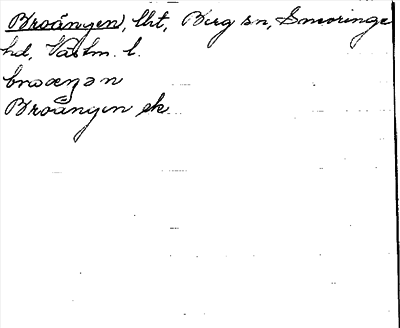 Broängen, lht, Berg sn, Snevringe
hd, Västm. l.
Broängen ek.